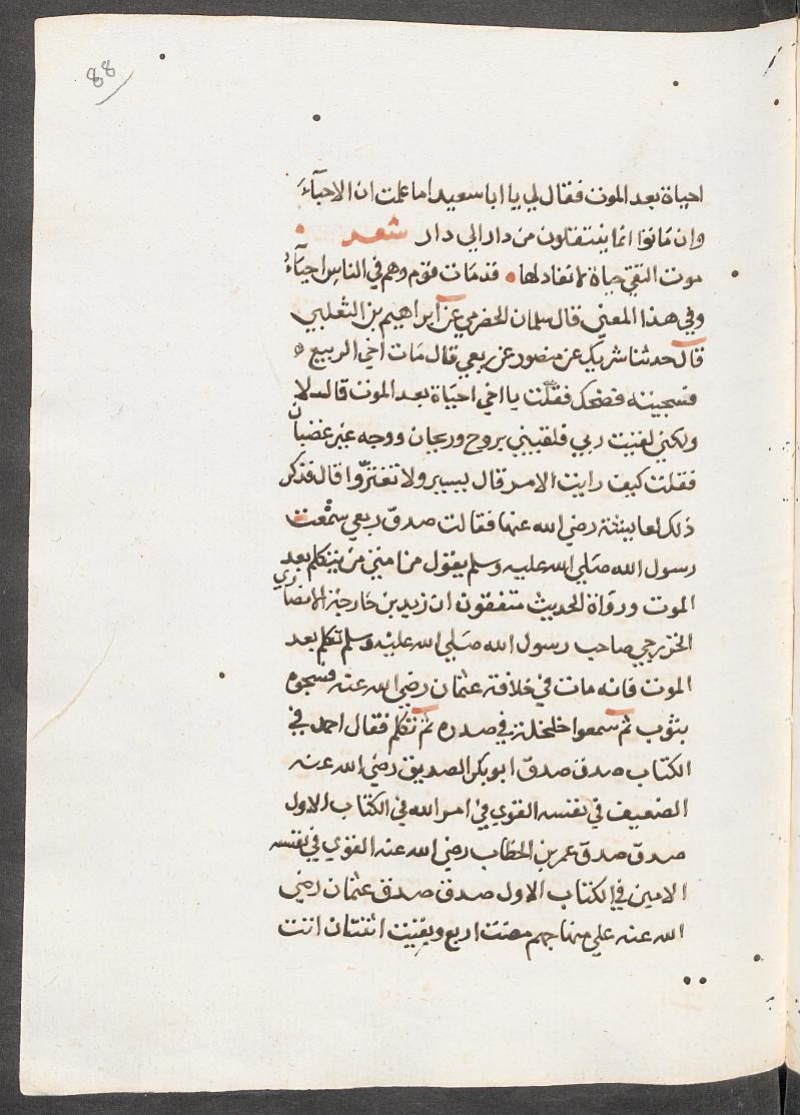 88
احياة بعد الموت فقال لي يا ابا سعيد اما علمت ان الاحباء
وان ماتوا انما ينتقلون من دار الي دار شعر
موت التقي حياة لا نفاد لها قد مات قوم وهم في الناس احياء
وفي هذا المعني قال سلمان الحضرمي عن ابراهيم بن الثعلبي
قال حدثنا شريك عن منصور عن ربعي قال مات اخي الربيع
فسجيته فضحك فقلت يا اخي احياة بعد الموت قال لا
ولكني لقيت ربي فلقيني بروح وريحان ووجه غير غضبان
فقلت كيف رايت الامر قال يسير ولا تغتروا قال فذكر
ذلك لعايشة رضي الله عنها فقالت صدق ربعي سمعت
رسول الله صلي الله عليه وسلم يقول من امتي من يتكلم بعد
الموت ورواة الحديث متفقون ان زيد بن خارجة الانصاري
الخزرجي صاحب رسول الله صلي الله عليه وسلم تكلم بعد
الموت فانه مات في خلافة عثمان رضي الله عنه فسجوه
بثوب ثم سمعوا خلخلة في صدره ثم تكلم فقال احمد في
الكتاب صدق صدق ابو بكر الصديق رضي الله عنه
الضعيف في نفسه القوي في امر الله في الكتاب الاول
صدق صدق عمر بن الخطاب رضي الله عنه القوي في نفسه
الامين في الكتاب الاول صدق صدق عثمان رضي
الله عنه علي منهاجهم مضت اربع وبقيت اثنتان اتت